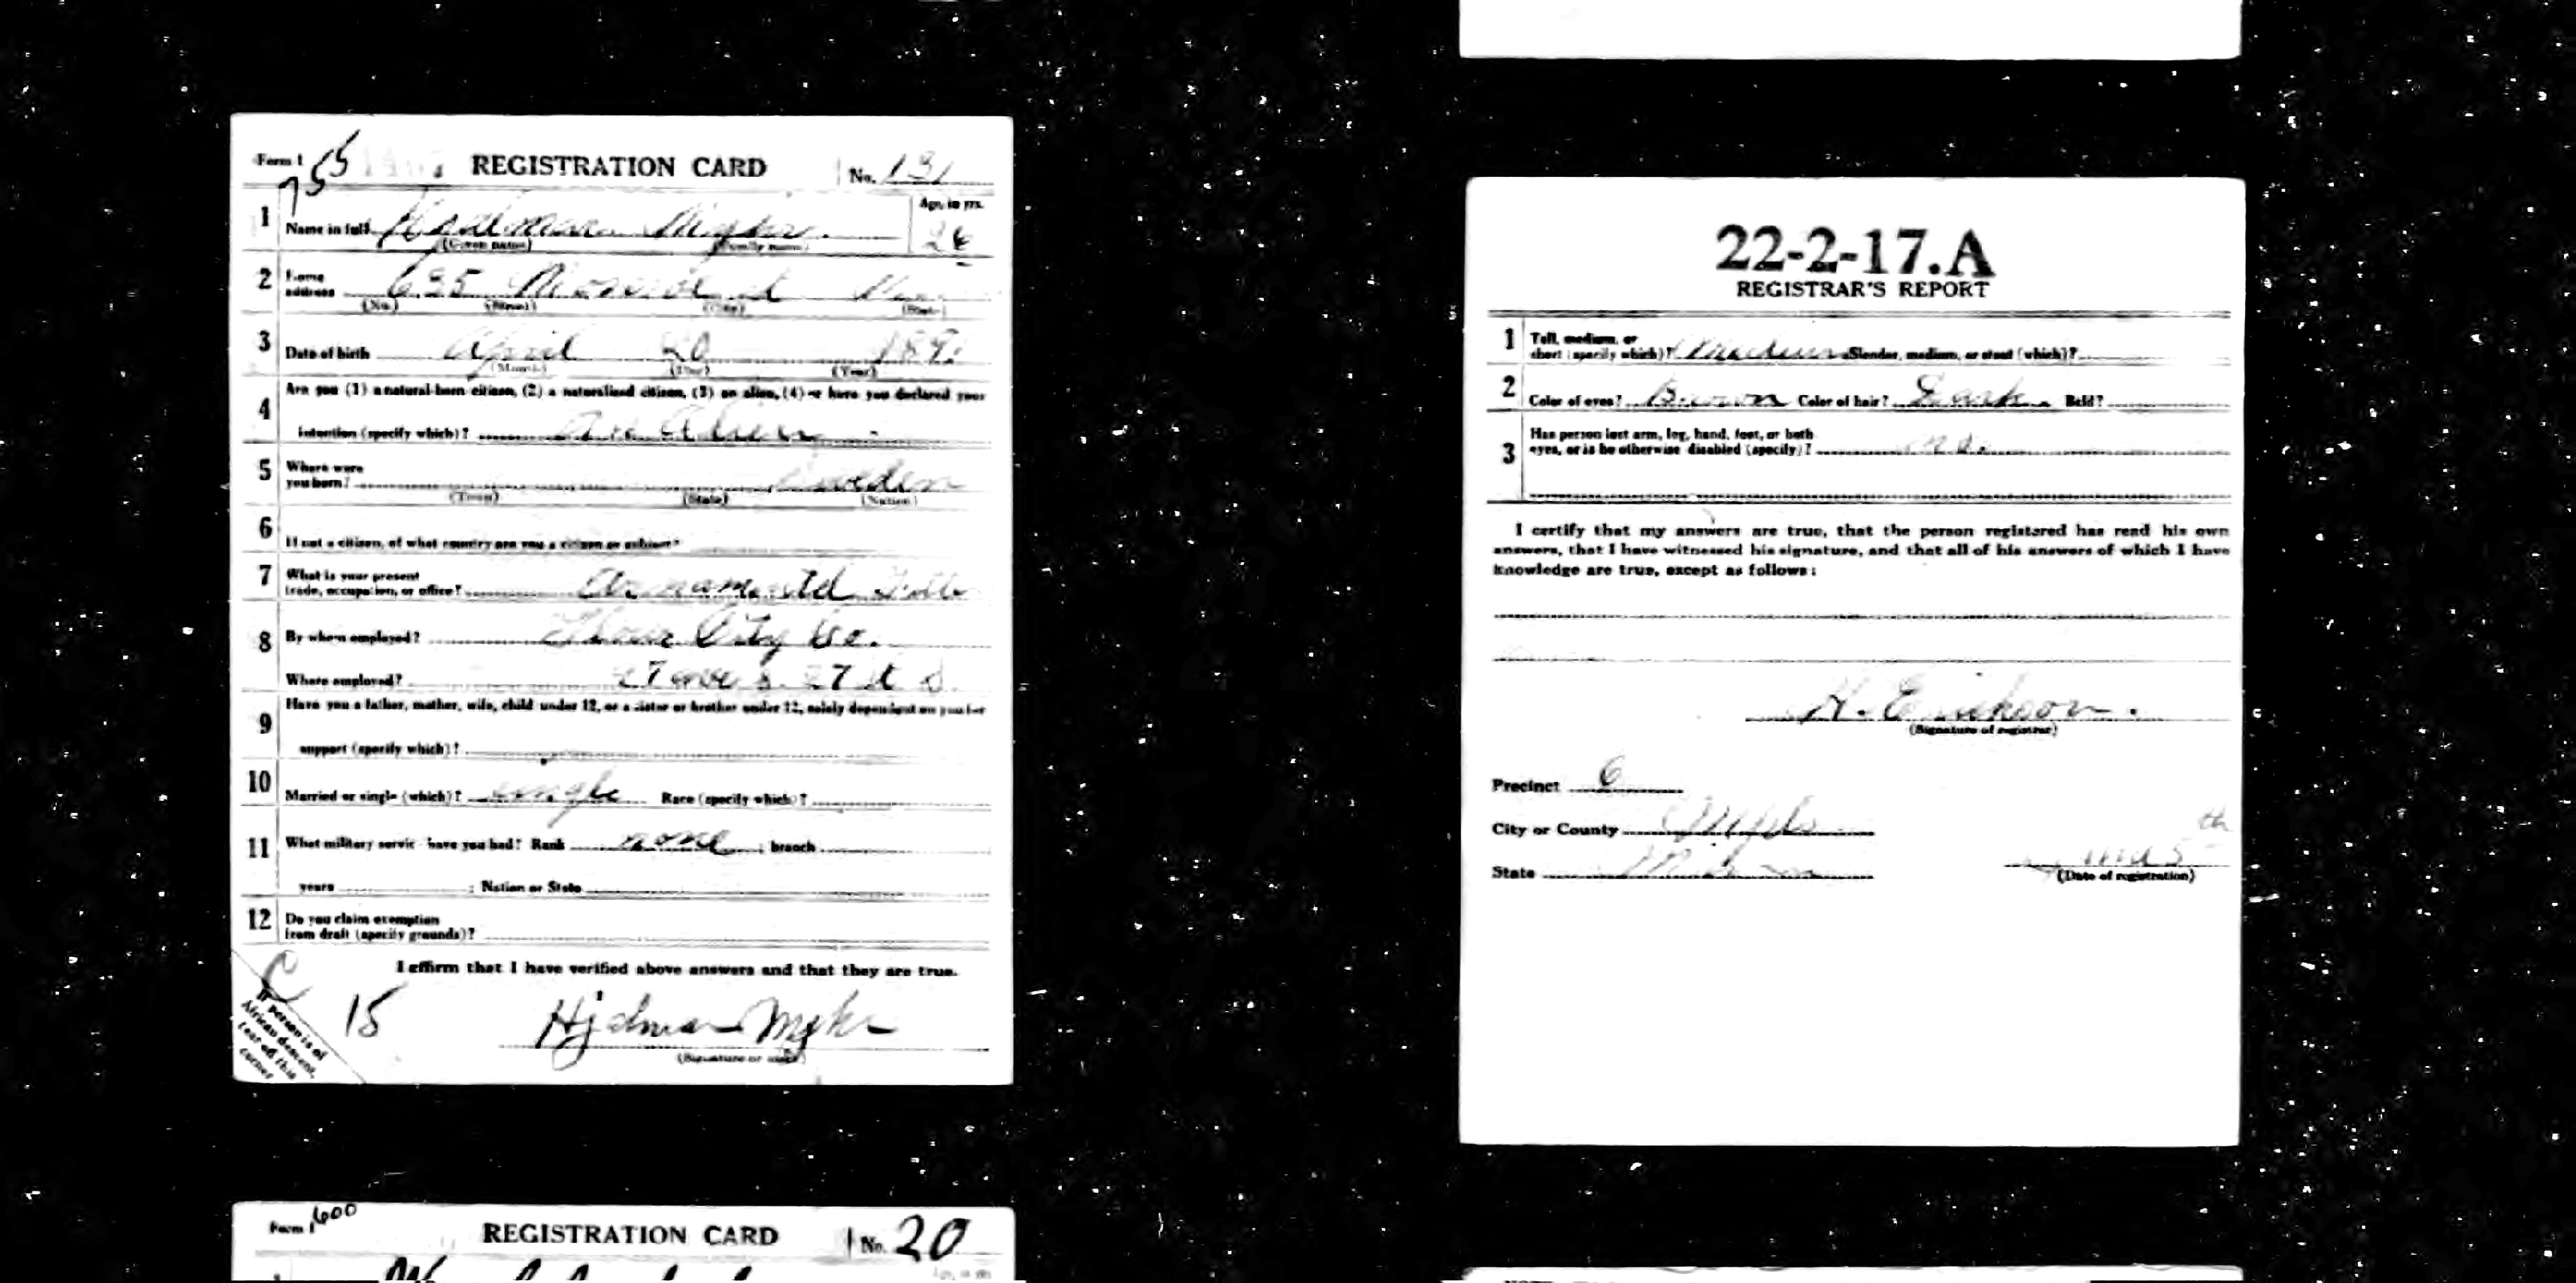 Form 1 REGISTRATION CARD No. 131
1 Name in full (Given name) (Family name) Age, in yrs. 26
2 Home address 635 (No.) (Street) (City) (State)
3 Date of birth April 20 189 (Month) (Day) (Year)
4 Are you (1) a natural-born citizen, (2) a naturalized citizen, (3) an alien, (4) or have you declared your
intention (specify which)? Alien
5 Where were you born? Sweden
(Town) (State) (Nation)
6 If not a citizen, of what country are you a citizen or subject?
7 What is your present trade, occupation, or office? Ornamental
8 By whom employed? City Co.
Where employed? 27 ave S. 27 St S.
9 Have you a father, mother, wife, child under 12, or a sister or brother under 12, solely dependent on you for
support (specify which)?
10 Married or single (which)? single Race (specify which)?
11 What military service have you had? Rank none ; branch
years ; Nation or State
12 Do you claim exemption from draft (specify grounds)?
I affirm that I have verified above answers and that they are true.
15
Hjalmar
(Signature or mark)
If person is of
African descent,
tear off this
corner
Form 1 600 REGISTRATION CARD No. 20
22-2-17.A
REGISTRAR'S REPORT
1 Tall, medium, or short (specify which)? Medium Slender, medium, or stout (which)?
2 Color of eyes? Brown Color of hair? Dark Bald?
3 Has person lost arm, leg, hand, foot, or both eyes, or is he otherwise disabled (specify)? no.
I certify that my answers are true, that the person registered has read his own
answers, that I have witnessed his signature, and that all of his answers of which I have
knowledge are true, except as follows:
H. Erickson.
(Signature of registrar)
Precinct 6
City or County Mpls
State Minn
June 5th
(Date of registration)